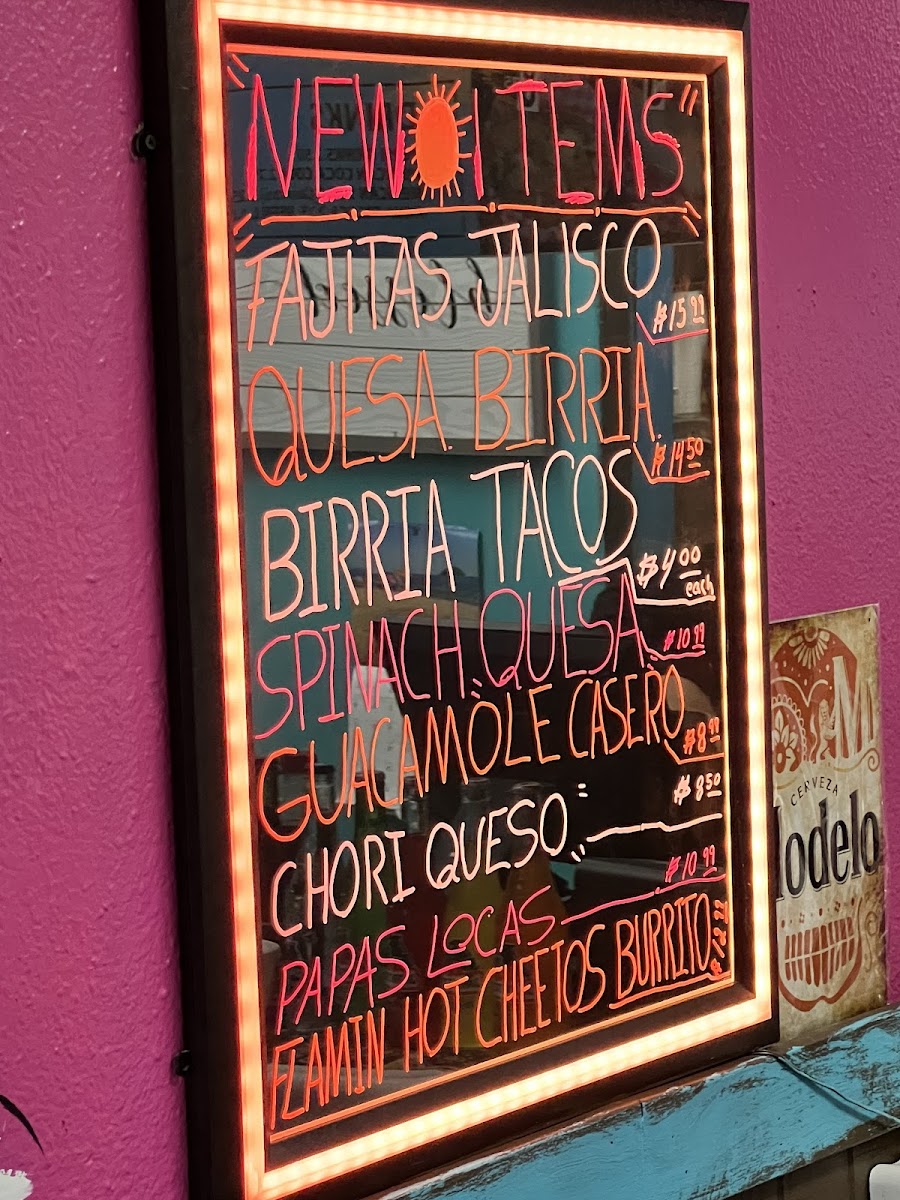 "NEW ITEMS"
FAJITAS JALISCO
$15.99
QUESA BIRRIA
$14.50
BIRRIA TACOS
$4.00
each
SPINACH QUESA
$10.99
GUACAMOLE CASERO
$8.99
CHORI QUESO
$8.50
PAPAS LOCAS
$10.99
FLAMIN HOT CHEETOS BURRITO
M
CERVEZA
Modelo